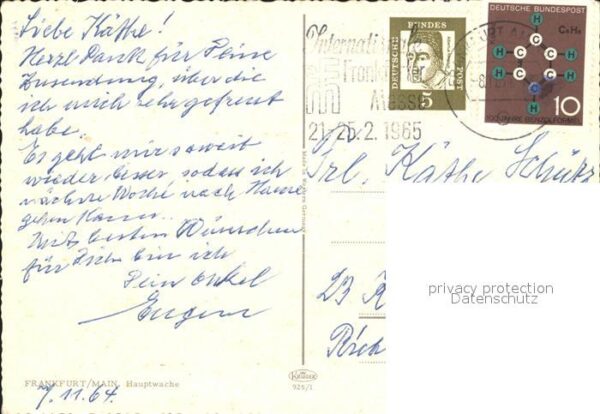 Liebe Käthe!
Herzl. Dank für Deine
Zusendung, über die
ich mich sehr gefreut
habe.
Es geht mir soweit
wieder besser, sodass ich
nächste Woche nach Hause
gehen kann.
Mit besten Wünschen
für Dich bin ich
Dein Onkel
Eugen
FRANKFURT/MAIN, Hauptwache
7.11.64.
Internati
Frank
Messe
21.-25.2.1965
BUNDES
POST
DEUTSCHE
5
DEUTSCHE BUNDESPOST
C₆H₆
H
H H
H H
H
C
C C
C C
10
100 JAHRE BENZOLFORMEL
Frl. Käthe
23
privacy protection
Datenschutz
Krüger
925/1